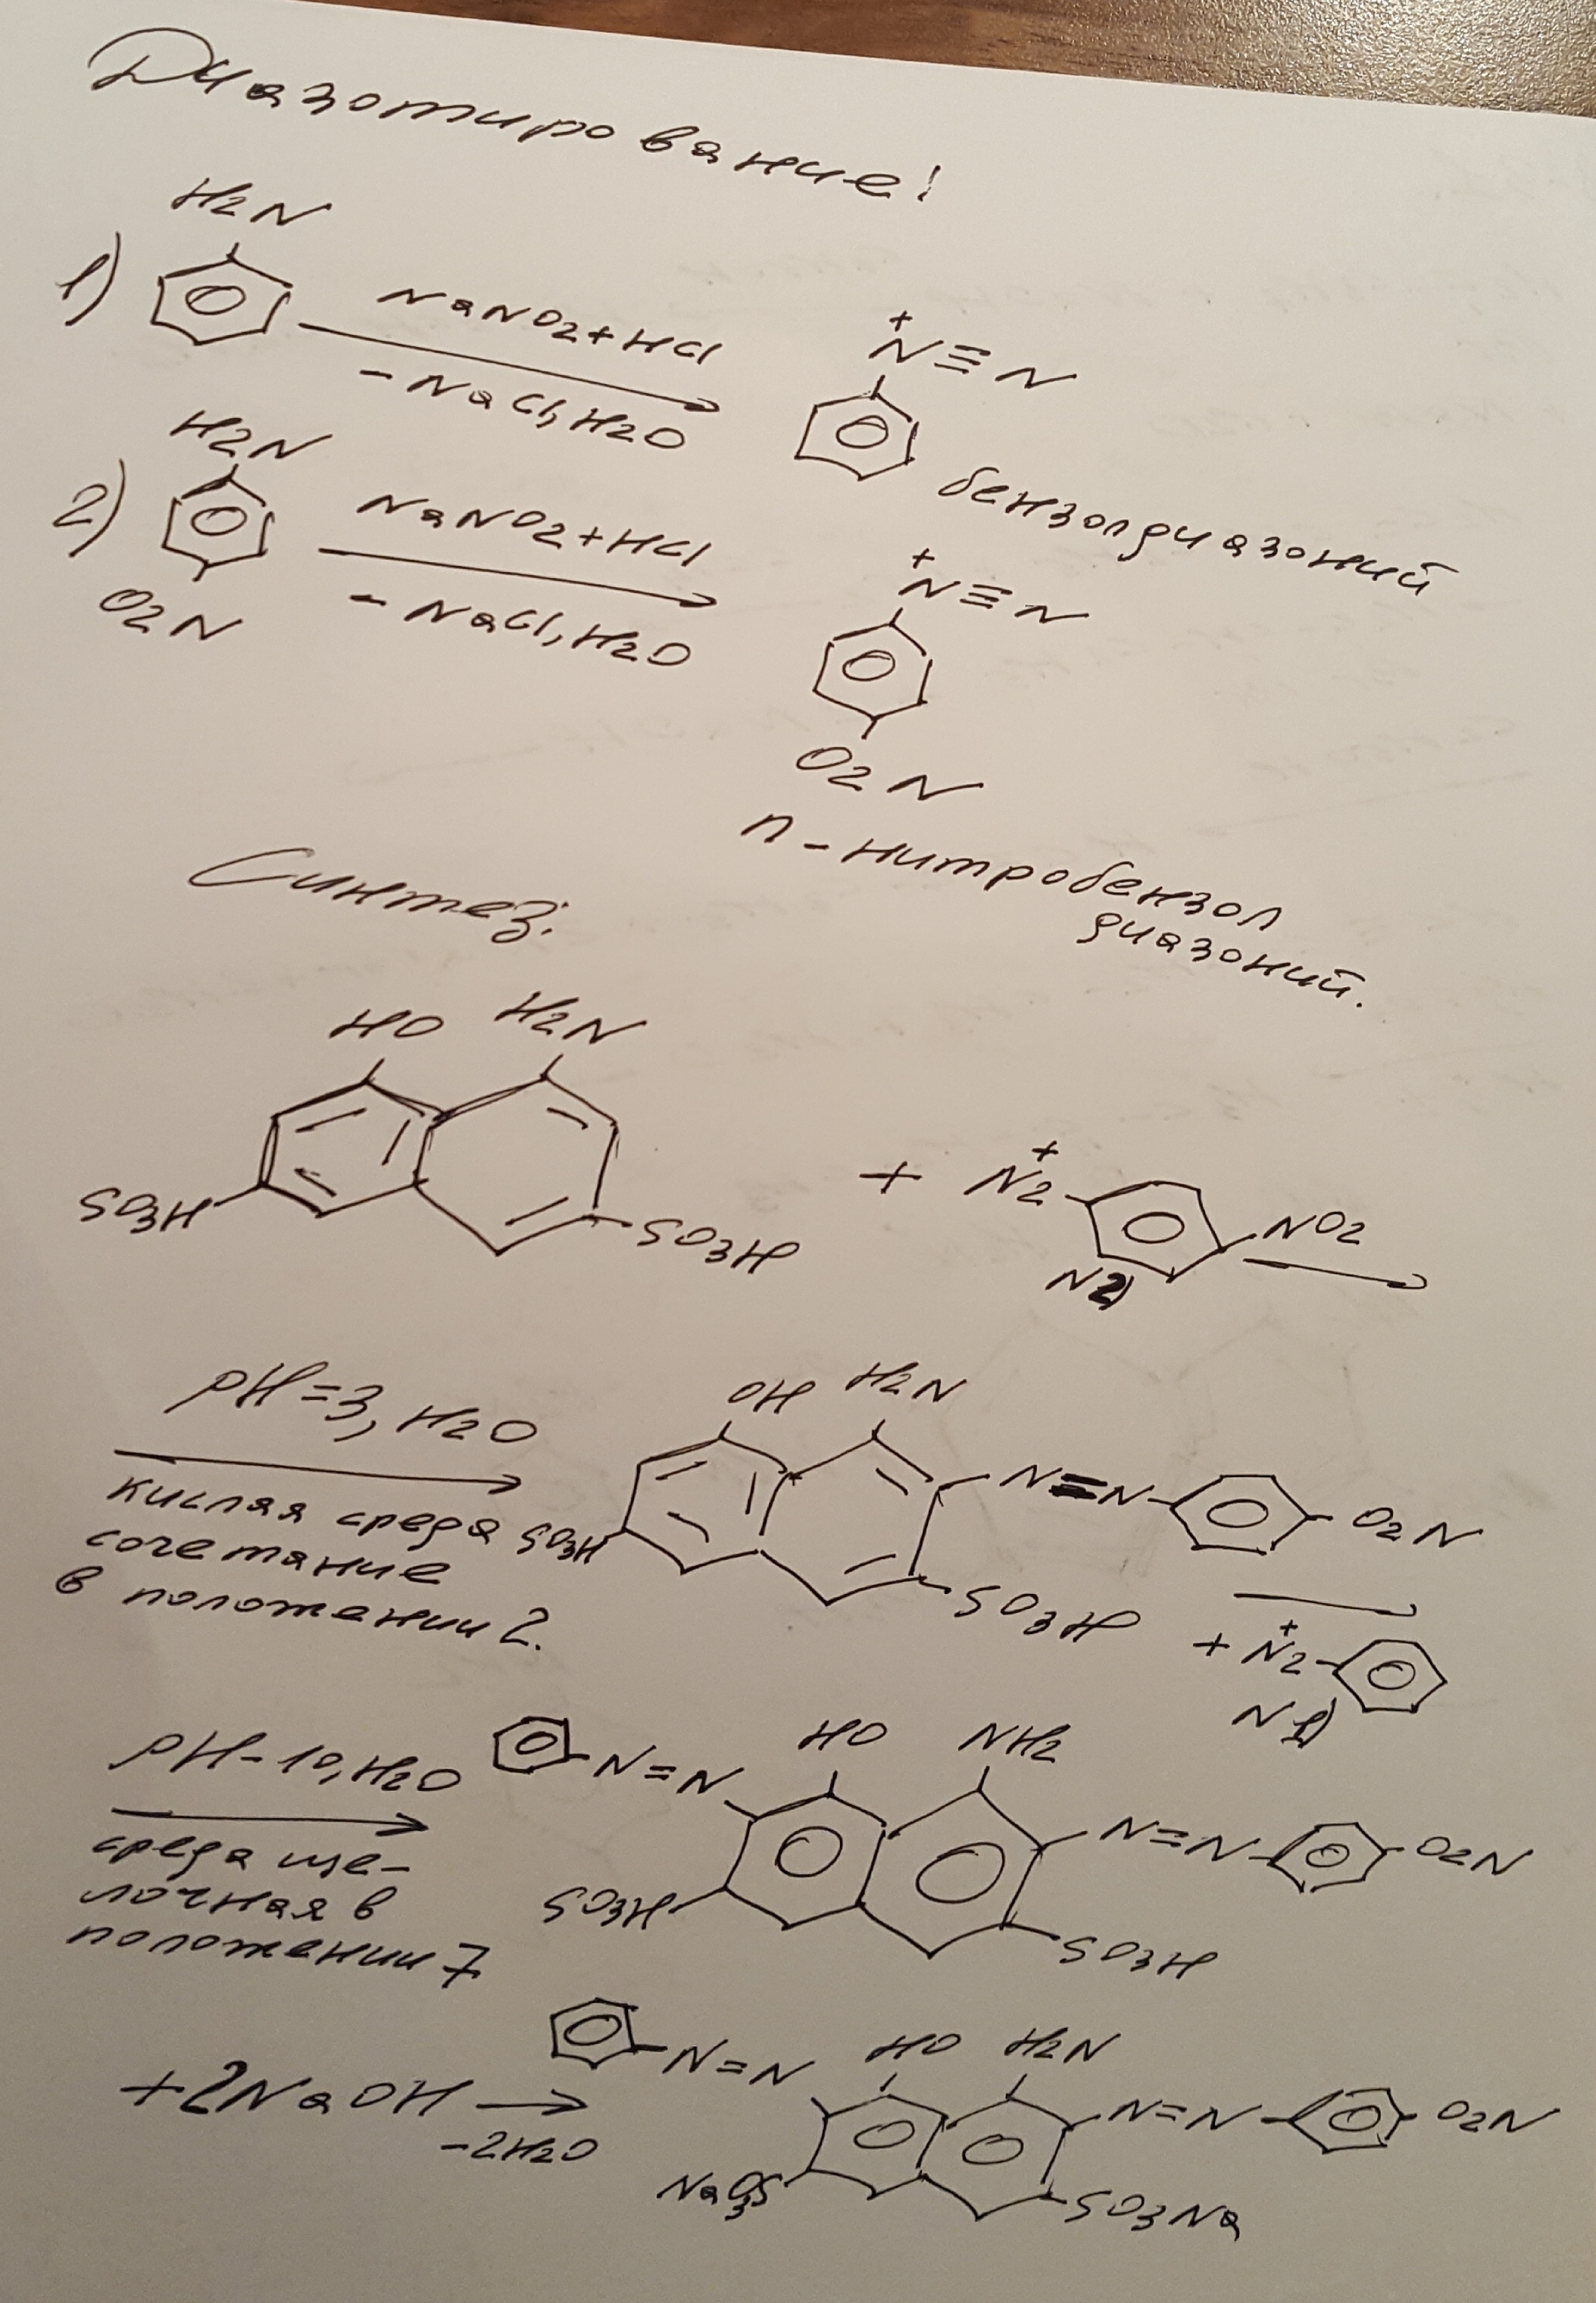 Диазотирование!
H2N
1) NaNO2+HCl
-NaCl, H2O
+
N≡N
бензолдиазоний
H2N
2) NaNO2+HCl
-NaCl, H2O
O2N
+
N≡N
O2N
п-нитробензол
диазоний.
Синтез:
HO H2N
SO3H SO3H
+ N2+ NO2
N2)
pH=3, H2O
кислая среда
сочетание
в положении 2.
OH H2N
N=N O2N
SO3H SO3H
+ N2+
N1)
pH-10, H2O
среда ще-
лочная в
положении 7
N=N HO NH2 N=N O2N
SO3H SO3H
+2NaOH
-2H2O
N=N HO H2N N=N O2N
NaO3S SO3Na